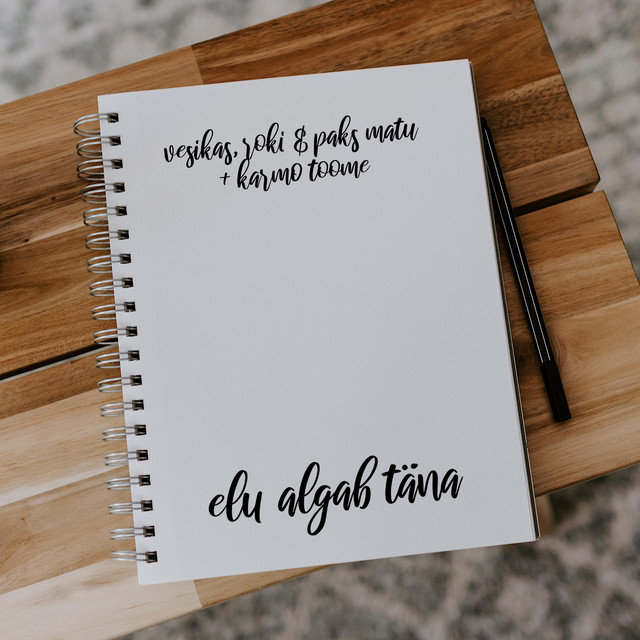 vesikas, roki & paks matu
+ karmo toome
elu algab täna